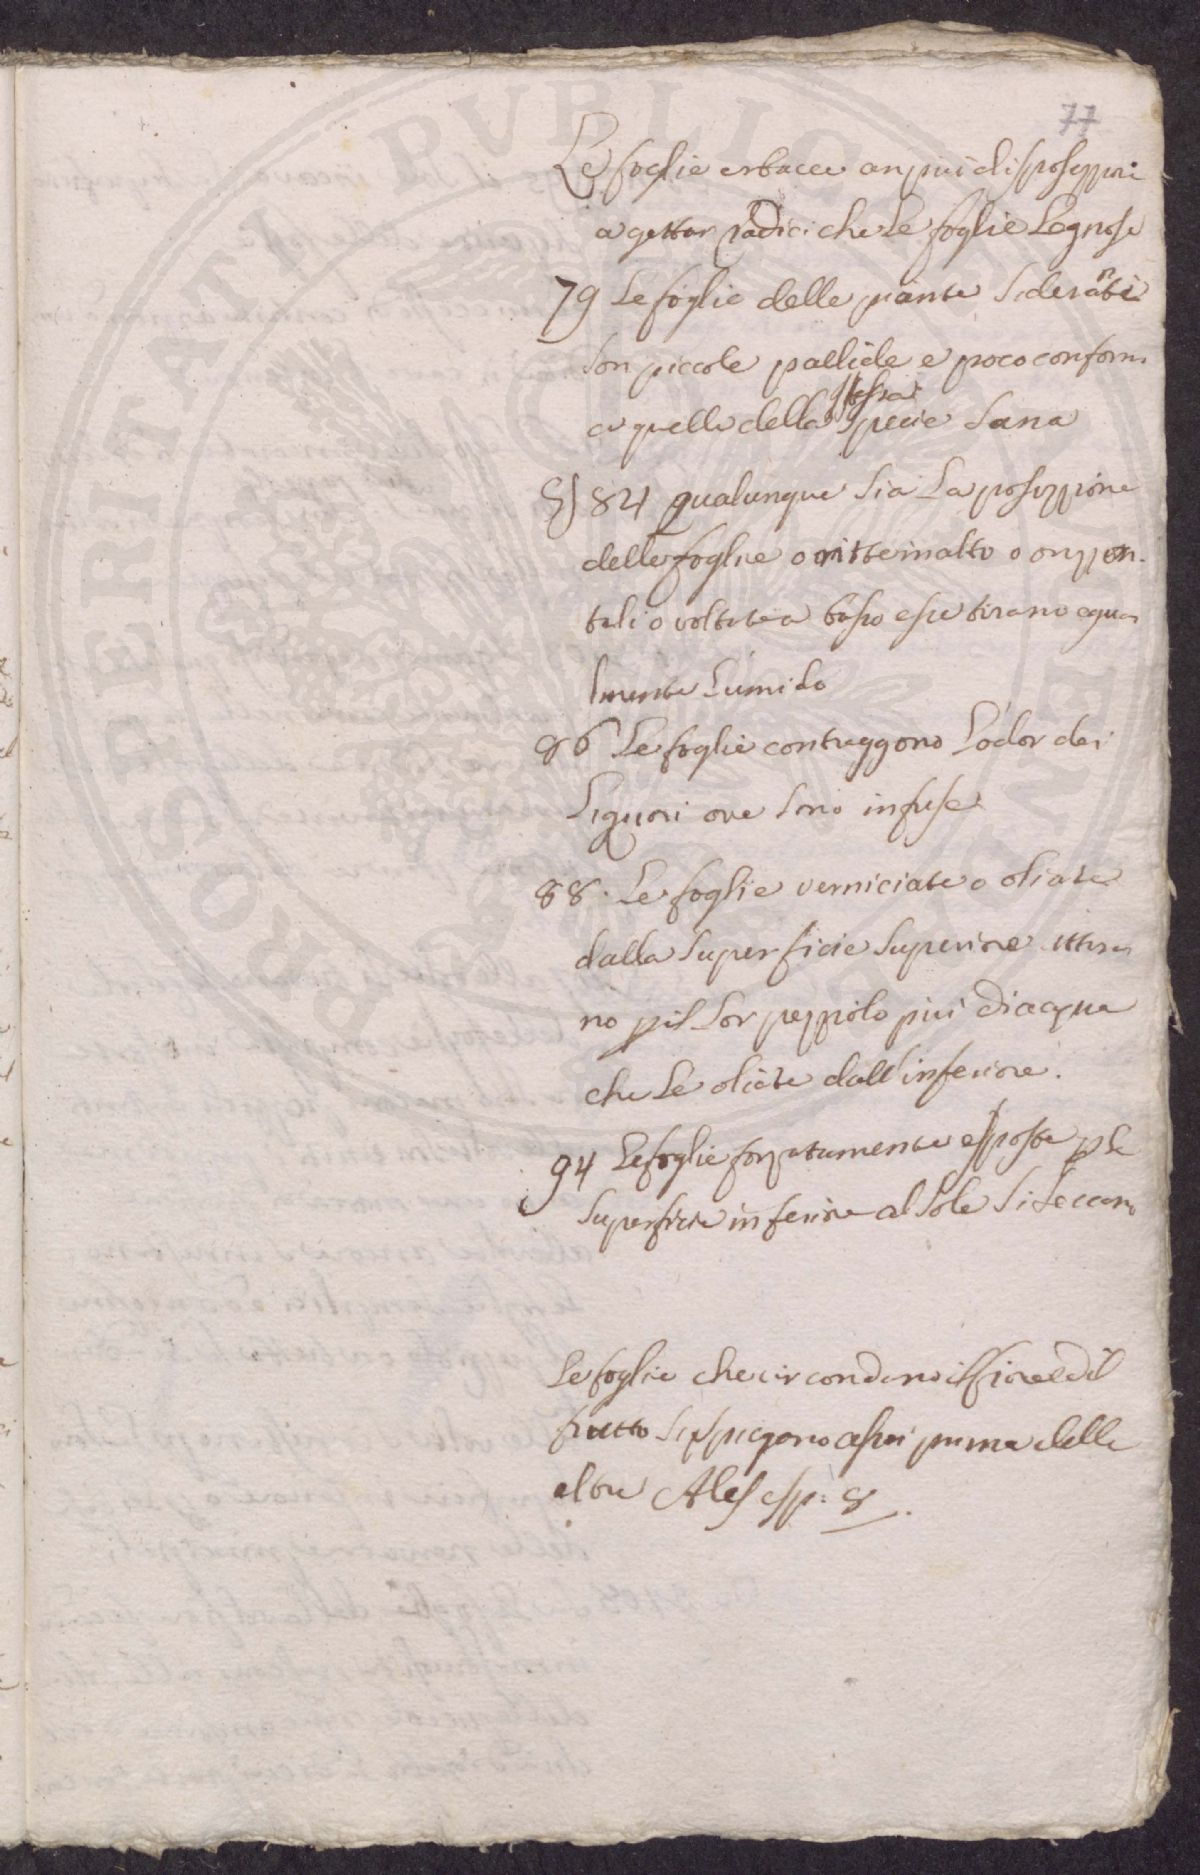 77
Le foglie erbacee an piu disposizzioni
a gettar radici che Le foglie Legnose
79 Le foglie delle piante Sideranti
Son piccole pallide e poco conformi
a quelle della stessa Specie Sana
84 qualunque Sia La posizzione
delle foglie o ritte in alto o orizzon-
tali o voltate a basso esse tirano egua
lmente L'umido
86 Le foglie contraggono L'odor dei
Liquori ove Sono infuse
88. Le foglie verniciate o oliate
dalla Superficie Superiore attira
no pil Lor pezziolo piu di acqua
che Le oliate dall'inferiore.
94 Le foglie forzatamente esposte p la
Superficie inferiore al Sole Si Seccano
Le foglie che circondano il fiore ed il
frutto Si Spiegono assai prima delle
altre Ales esp: 8.
PROSPERITATI PUBLICAE